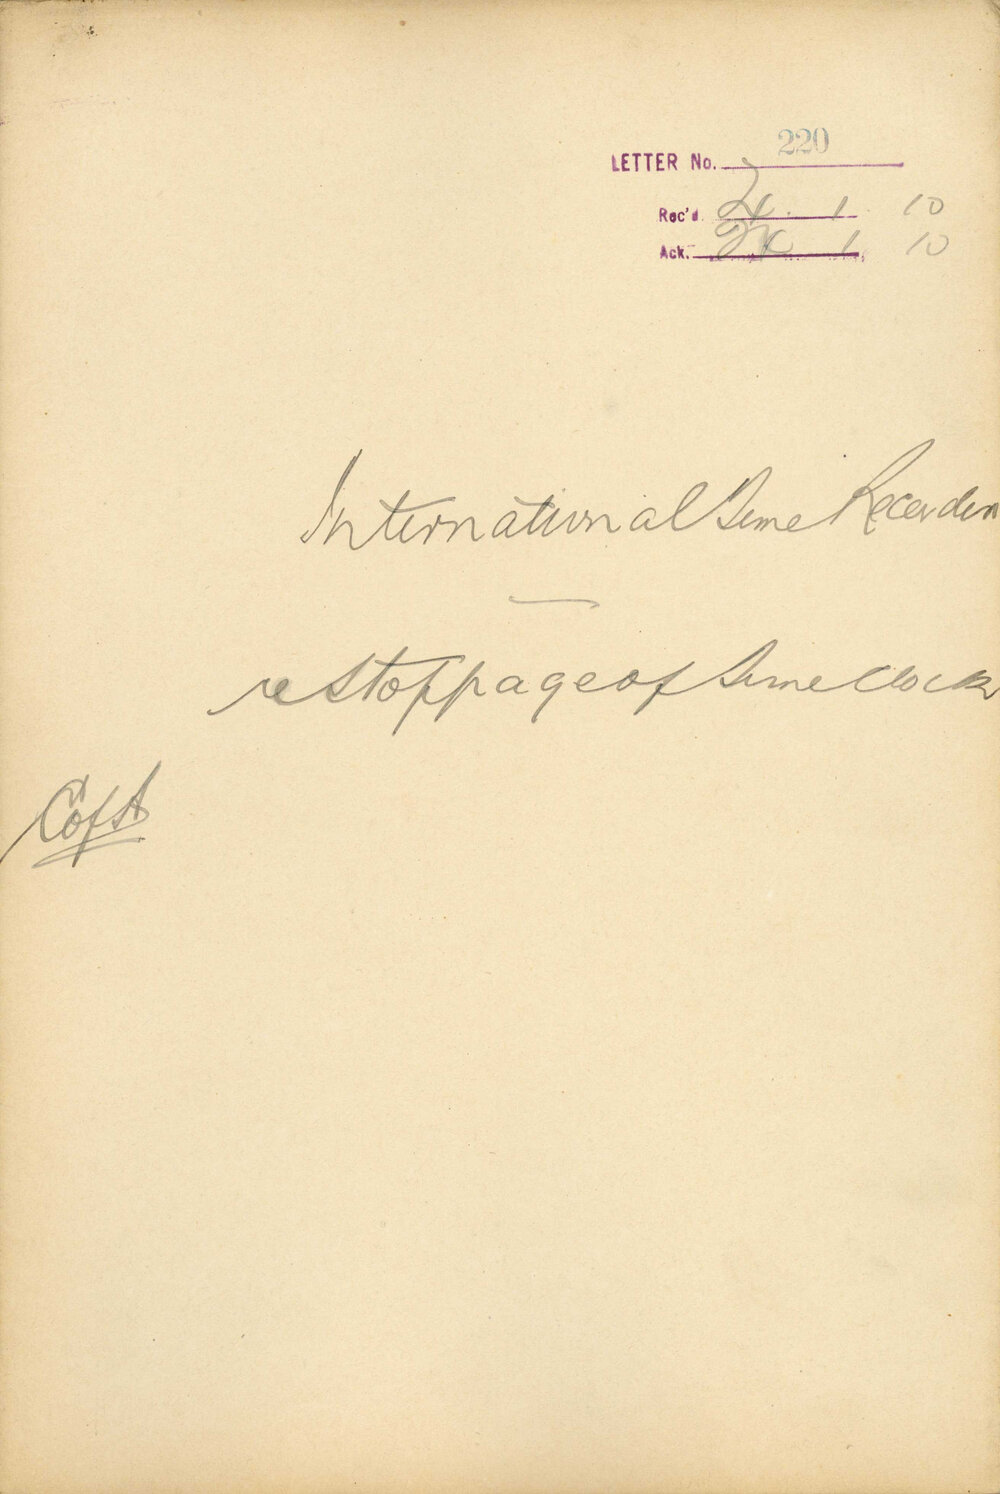 220
LETTER No.
Rec'd. 24 . 1 . 10
Ack. 24 1. 10
International Time Recorders
re Stoppage of Time Clocks
C of A